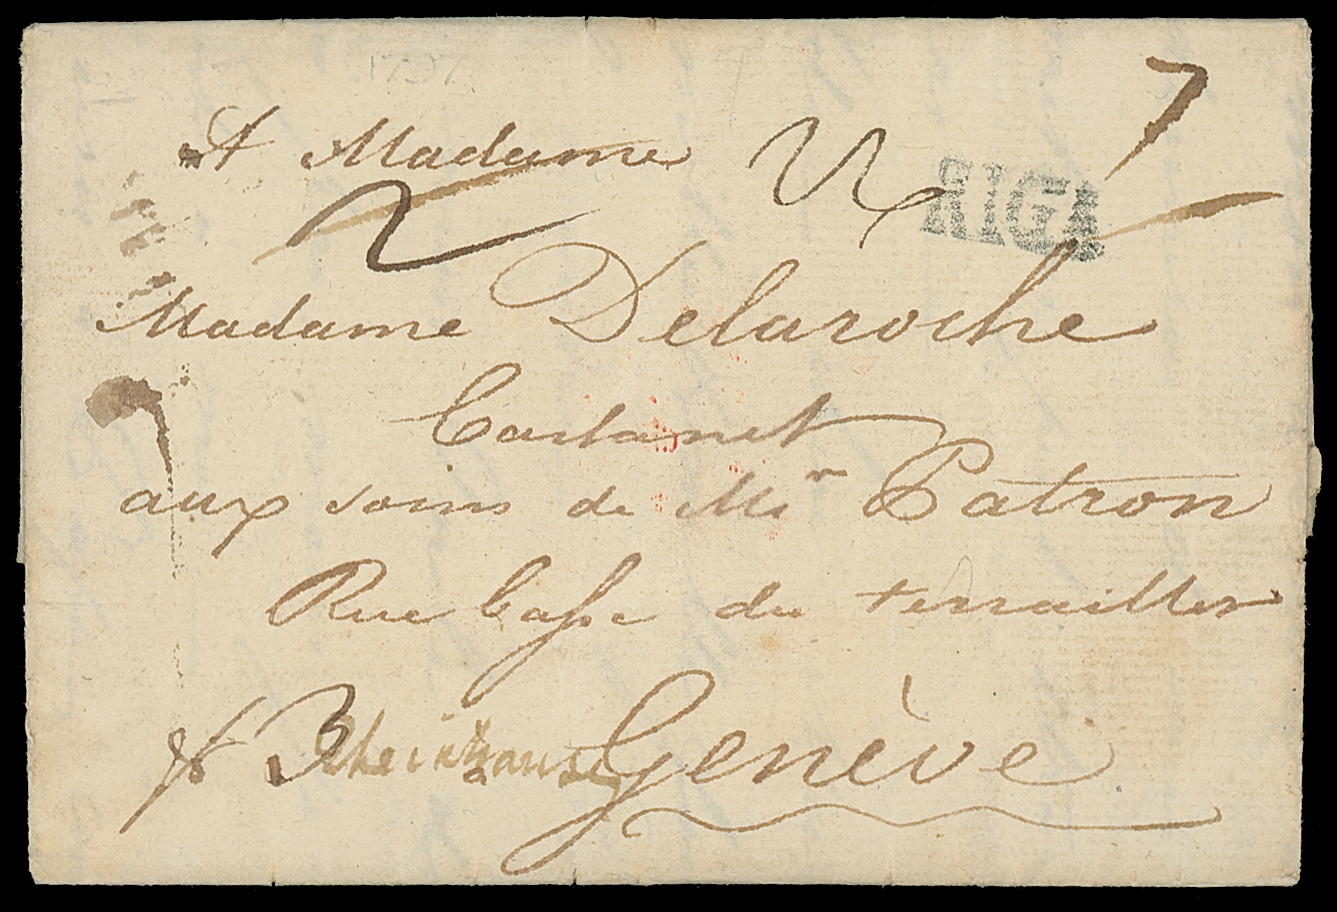 1797
A Madame
7
RIGA
2
Madame Delaroche
Castanet
aux soins de Mr Patron
Rue basse du terrailler
pr Rheinhausen
3
Genève